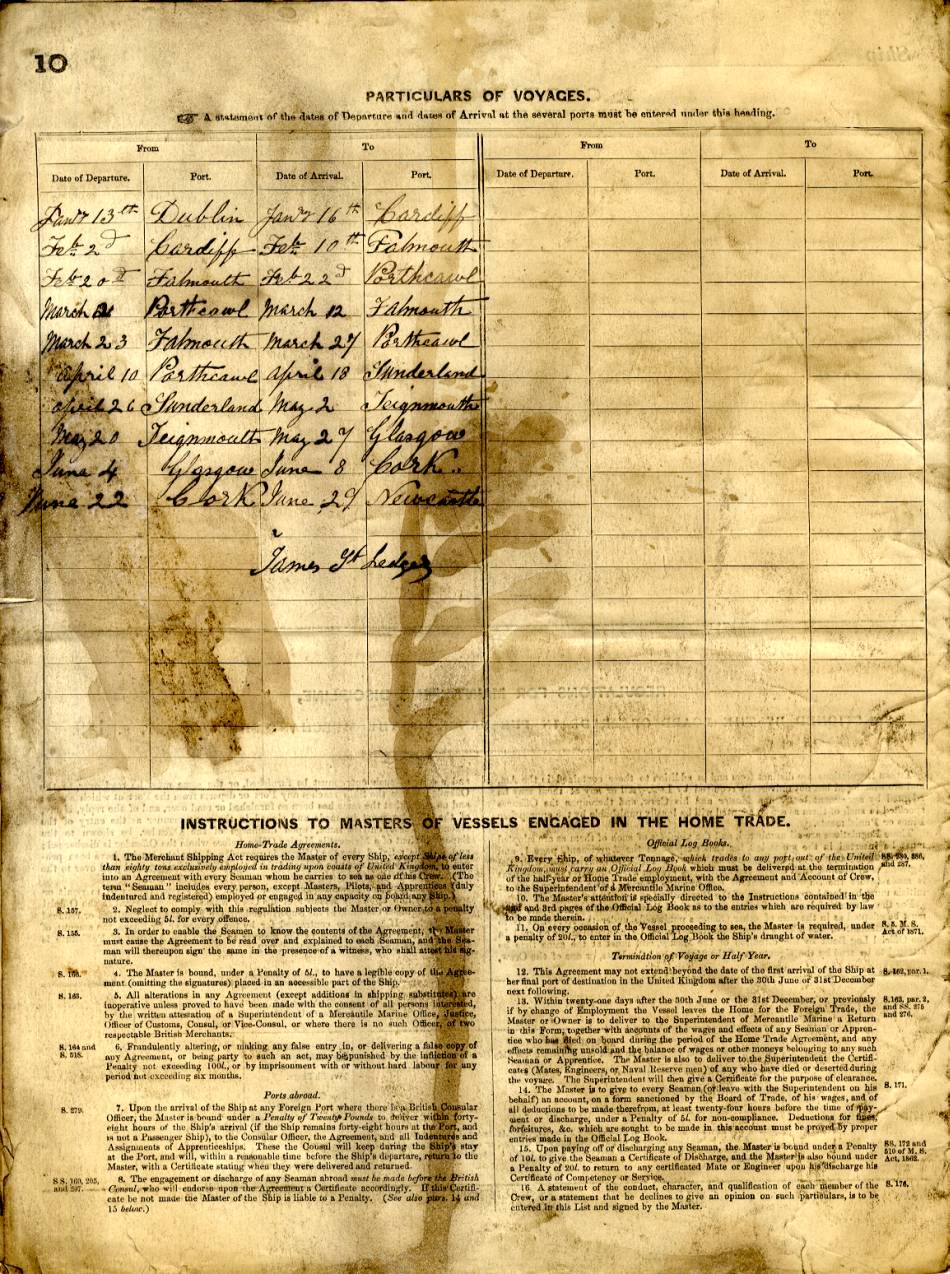 10
PARTICULARS OF VOYAGES.
☞ A statement of the dates of Departure and dates of Arrival at the several ports must be entered under this heading.
From To From To
Date of Departure. Port. Date of Arrival. Port. Date of Departure. Port. Date of Arrival. Port.
Jany 13th Dublin Jany 16th Cardiff
Feb 2d Cardiff Feb 10th Falmouth
Feb 20 Falmouth Feb 22d Porthcawl
March Porthcawl March 12 Falmouth
March 23 Falmouth March 27 Porthcawl
April 10 Porthcawl April 18 Sunderland
April 26 Sunderland May 2 Teignmouth
May 20 Teignmouth May 27 Glasgow
June 4 Glasgow June 8 Cork
June 22 Cork June 29 Newcastle
James St Ledger
INSTRUCTIONS TO MASTERS OF VESSELS ENGAGED IN THE HOME TRADE.
Home-Trade Agreements.
1. The Merchant Shipping Act requires the Master of every Ship, except Ships of less
than eighty tons exclusively employed in trading upon coasts of United Kingdom, to enter
into an Agreement with every Seaman whom he carries to sea as one of his Crew. (The
term "Seaman" includes every person, except Masters, Pilots, and Apprentices (duly
indentured and registered) employed or engaged in any capacity on board any Ship.)
S. 157. 2. Neglect to comply with this regulation subjects the Master or Owner to a penalty
not exceeding 5l. for every offence.
S. 155. 3. In order to enable the Seamen to know the contents of the Agreement, the Master
must cause the Agreement to be read over and explained to each Seaman, and the Sea-
man will thereupon sign the same in the presence of a witness, who shall attest his sig-
nature.
4. The Master is bound, under a Penalty of 5l., to have a legible copy of the Agree-
ment (omitting the signatures) placed in an accessible part of the Ship.
S. 163. 5. All alterations in any Agreement (except additions in shipping substitutes) are
inoperative unless proved to have been made with the consent of all persons interested,
by the written attestation of a Superintendent of a Mercantile Marine Office, Justice,
Officer of Customs, Consul, or Vice-Consul, or where there is no such Officer, of two
respectable British Merchants.
S. 164 and S. 518. 6. Fraudulently altering, or making any false entry in, or delivering a false copy of
any Agreement, or being party to such an act, may be punished by the infliction of a
Penalty not exceeding 100l., or by imprisonment with or without hard labour for any
period not exceeding six months.
Ports abroad.
S. 279. 7. Upon the arrival of the Ship at any Foreign Port where there is a British Consular
Officer, the Master is bound under a Penalty of Twenty Pounds to deliver within forty-
eight hours of the Ship's arrival (if the Ship remains forty-eight hours at the Port, and
is not a Passenger Ship), to the Consular Officer, the Agreement, and all Indentures and
Assignments of Apprenticeships. These the Consul will keep during the Ship's stay
at the Port, and will, within a reasonable time before the Ship's departure, return to the
Master, with a Certificate stating when they were delivered and returned.
8. The engagement or discharge of any Seaman abroad must be made before the British
Consul, who will endorse upon the Agreement a Certificate accordingly. If this Certifi-
cate be not made the Master of the Ship is liable to a Penalty. (See also pars. 14 and
15 below.)
Official Log Books.
9. Every Ship, of whatever Tonnage, which trades to any port out of the United
Kingdom, must carry an Official Log Book which must be delivered at the termination
of the half-Year or Home Trade employment, with the Agreement and Account of Crew,
to the Superintendent of a Mercantile Marine Office.
10. The Master's attention is specially directed to the Instructions contained in the
and 3rd pages of the Official Log Book as to the entries which are required by law
to be made therein.
11. On every occasion of the Vessel proceeding to sea, the Master is required, under S. 5, M. S. Act of 1871.
a penalty of 20l., to enter in the Official Log Book the Ship's draught of water.
Termination of Voyage or Half Year.
12. This Agreement may not extend beyond the date of the first arrival of the Ship at S. 162, par. 1.
her final port of destination in the United Kingdom after the 30th June or 31st December
next following.
13. Within twenty-one days after the 30th June or the 31st December, or previously S. 163, par. 2, and SS. 275 and 276.
if by change of Employment the Vessel leaves the Home for the Foreign Trade, the
Master or Owner is to deliver to the Superintendent of Mercantile Marine a Return
in this Form, together with accounts of the wages and effects of any Seaman or Appren-
tice who has died on board during the period of the Home Trade Agreement, and any
effects remaining unsold and the balance of wages or other moneys belonging to any such
Seaman or Apprentice. The Master is also to deliver to the Superintendent the Certifi-
cates (Mates, Engineers, or Naval Reserve men) of any who have died or deserted during
the voyage. The Superintendent will then give a Certificate for the purpose of clearance.
14. The Master is to give to every Seaman (or leave with the Superintendent on his S. 171.
behalf) an account, on a form sanctioned by the Board of Trade, of his wages, and of
all deductions to be made therefrom, at least twenty-four hours before the time of pay-
ment or discharge, under a Penalty of 5l. for non-compliance. Deductions for fines,
forfeitures, &c. which are sought to be made in this account must be proved by proper
entries made in the Official Log Book.
15. Upon paying off or discharging any Seaman, the Master is bound under a Penalty SS. 172 and 510 of M. S. Act, 1862.
of 10l. to give the Seaman a Certificate of Discharge, and the Master is also bound under
a Penalty of 20l. to return to any certificated Mate or Engineer upon his discharge his
Certificate of Competency or Service.
16. A statement of the conduct, character, and qualification of each member of the S. 176.
Crew, or a statement that he declines to give an opinion on such particulars, is to be
entered in this List and signed by the Master.